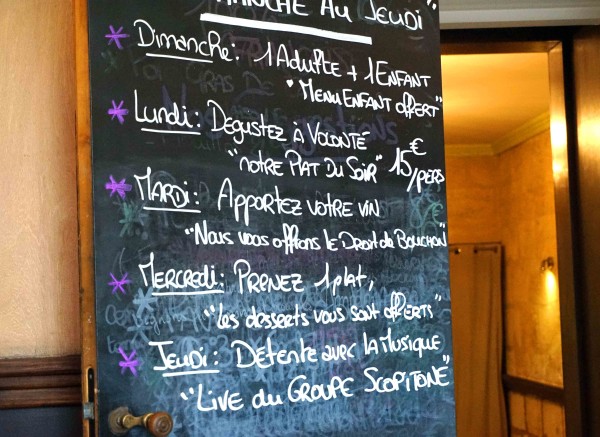 MANCHE AU JEUDI"
Dimanche: 1 Adulte + 1 ENFANT
"MENU ENFANT offert"
Lundi: Degustez à Volonté
"notre PLAT DU Soir" 15€/pers
MARDI: Apportez votre vin
"Nous vous offrons le Droit de Bouchon"
Mercredi: PRENEZ 1 plat,
"les desserts vous sont offerts"
Jeudi: Détente avec la Musique
"Live du GROUPE SCOPITONE"